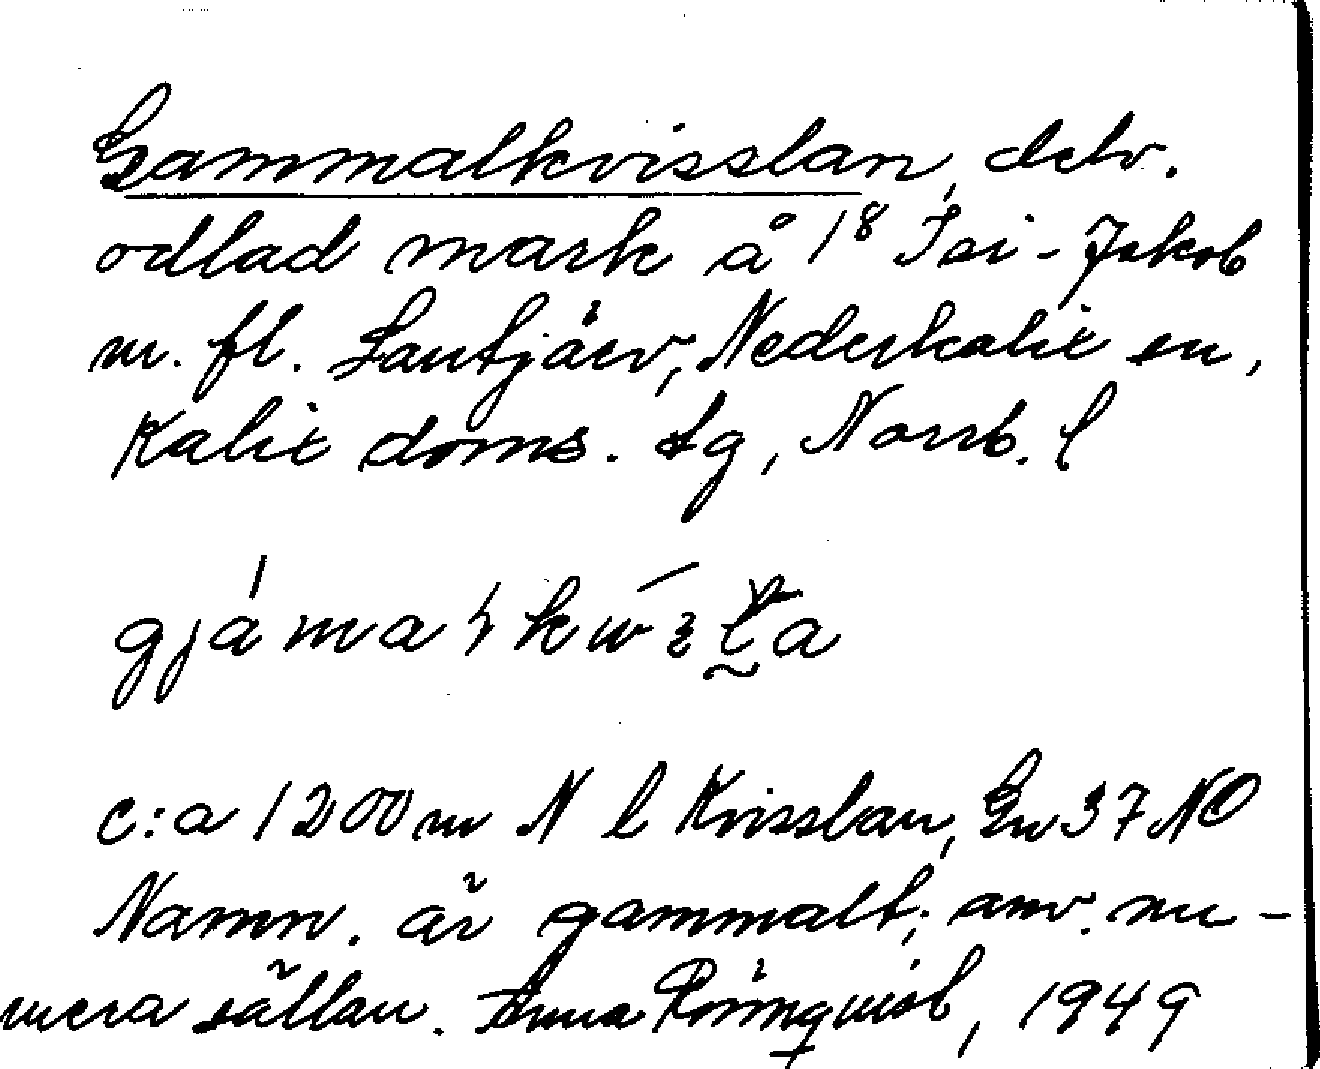 Gammalkvisslan, delv.
odlad mark å 1⁸ Isi-Jakob
m. fl. Lantjärv, Nederkalix sn,
Kalix doms. tg, Norrb. l
c:a 1200 m N l Kvisslan, En 37 NO
Namn. är gammalt; anv. nu-
mera sällan. Anna Rönnquist, 1949